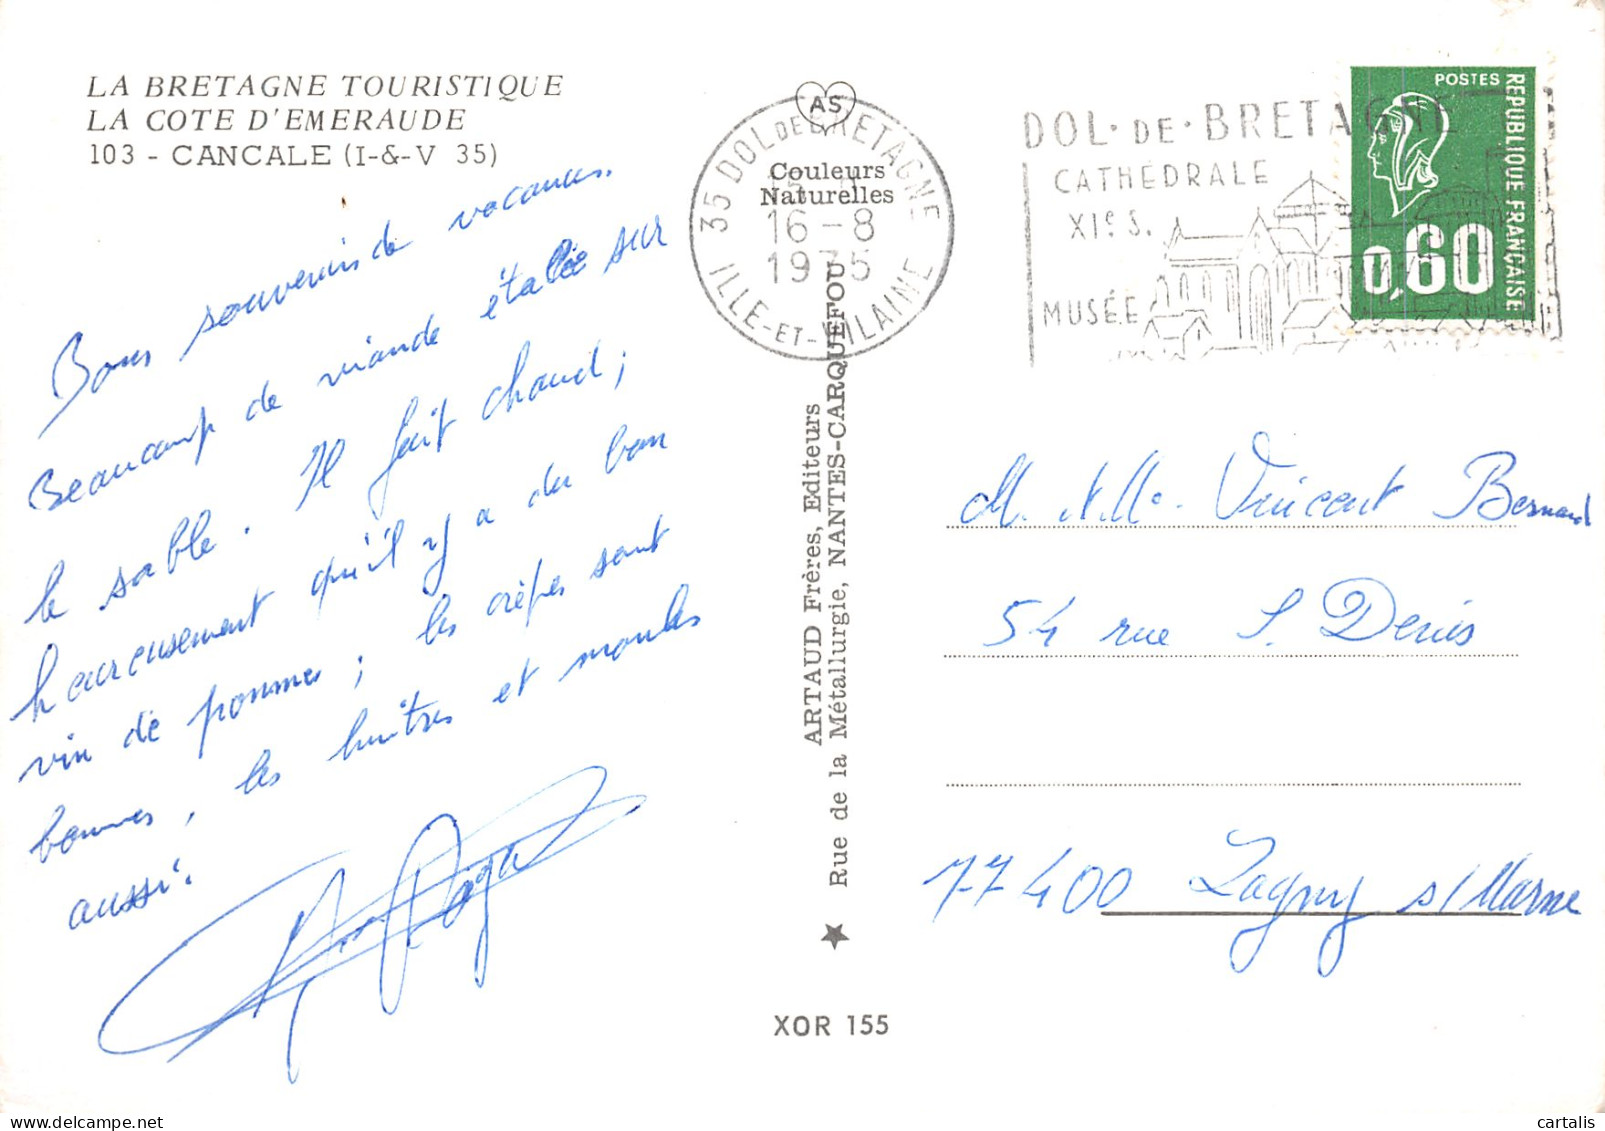 LA BRETAGNE TOURISTIQUE
LA COTE D'EMERAUDE
103 - CANCALE (I-&-V 35)
Bons souvenirs de vacances.
Beaucoup de viande étalée sur
le sable. Il fait chaud;
heureusement qu'il y a du bon
vin de pommes; les crêpes sont
bonnes, les huîtres et moules
aussi.
AS
Couleurs
Naturelles
35 DOL DE BRETAGNE
16-8
1975
ILLE-ET-VILAINE
DOL·DE·BRETAGNE
CATHÉDRALE
XIe S.
MUSÉE
POSTES
REPUBLIQUE FRANÇAISE
0,60
ARTAUD Frères, Editeurs
Rue de la Métallurgie, NANTES-CARQUEFOU
XOR 155
M. Mme. Vincent Bernard
54 rue S. Denis
77400 Lagny s/ Marne
cartalis